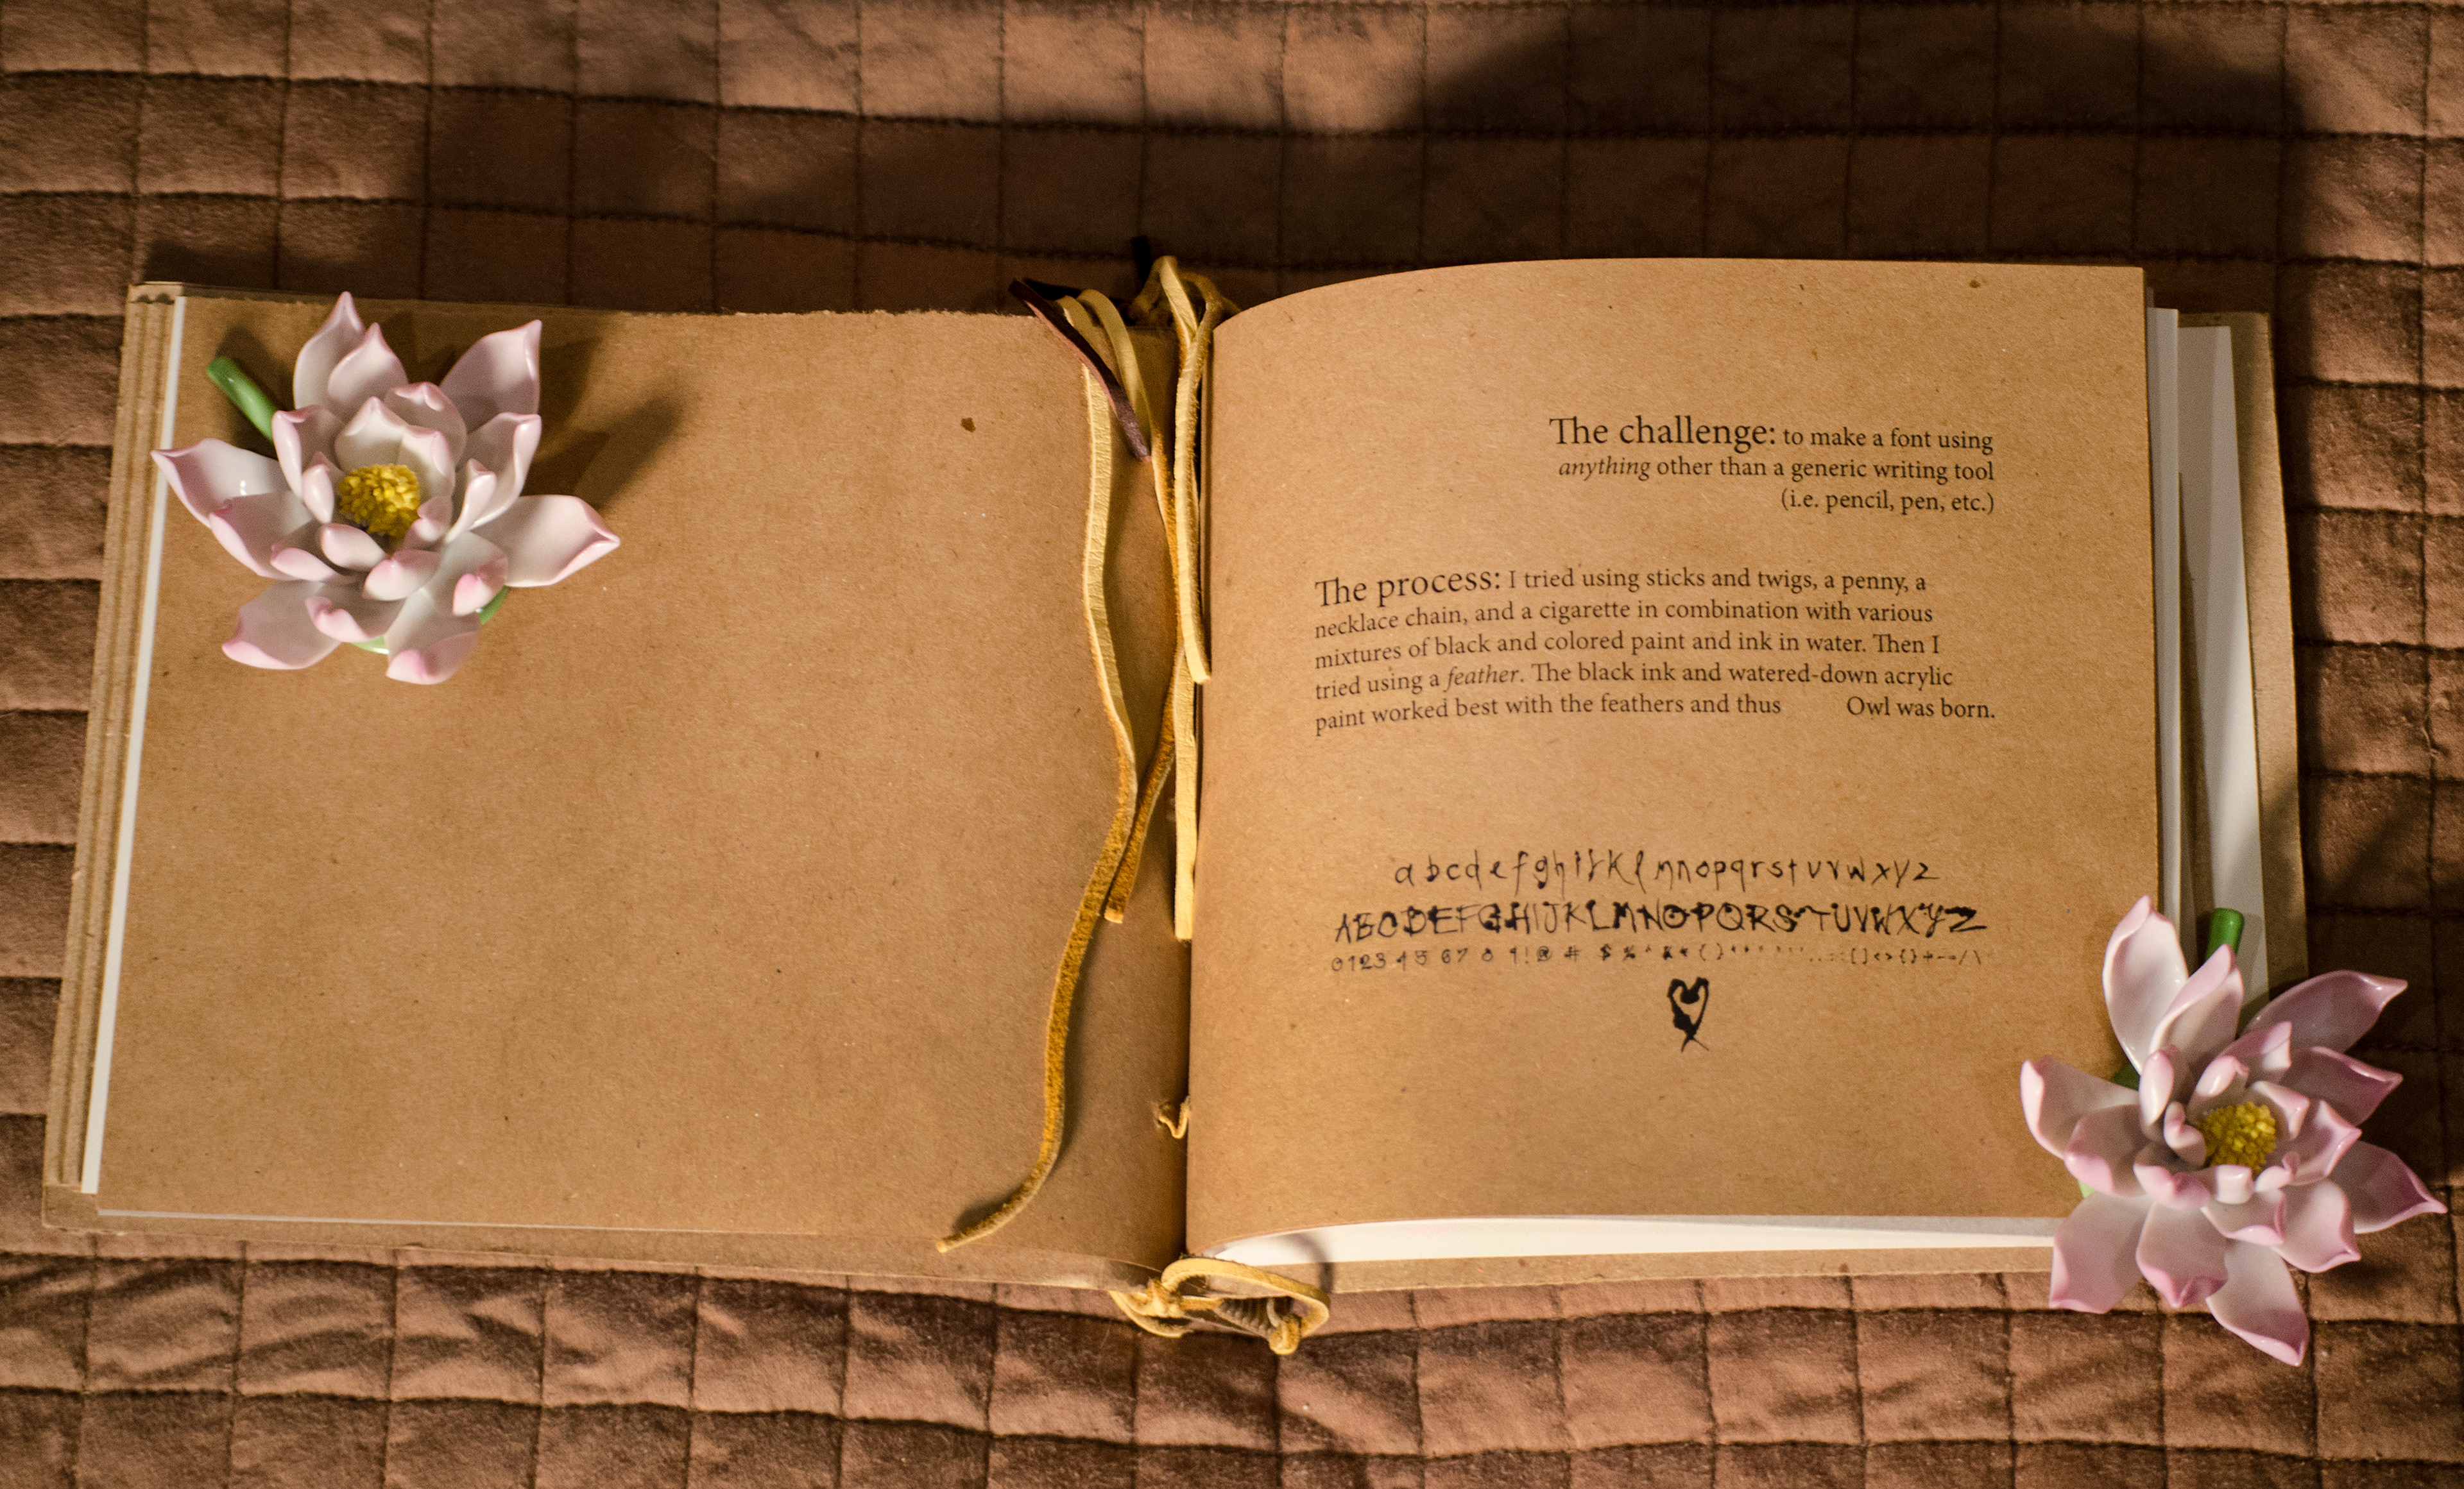 The challenge: to make a font using
anything other than a generic writing tool
(i.e. pencil, pen, etc.)
The process: I tried using sticks and twigs, a penny, a
necklace chain, and a cigarette in combination with various
mixtures of black and colored paint and ink in water. Then I
tried using a feather. The black ink and watered-down acrylic
paint worked best with the feathers and thus Owl was born.
a b c d e f g h i j k l m n o p q r s t u v w x y z
A B C D E F G H I J K L M N O P Q R S T U V W X Y Z
0 1 2 3 4 5 6 7 8 9 ! @ # $ % ^ & * ( )